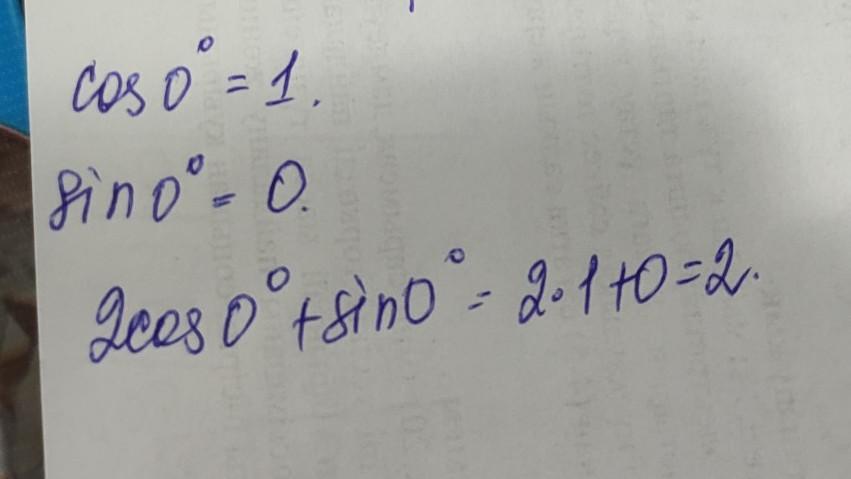 cos 0° = 1.
sin 0° = 0.
2cos 0° + sin 0° = 2·1+0=2.